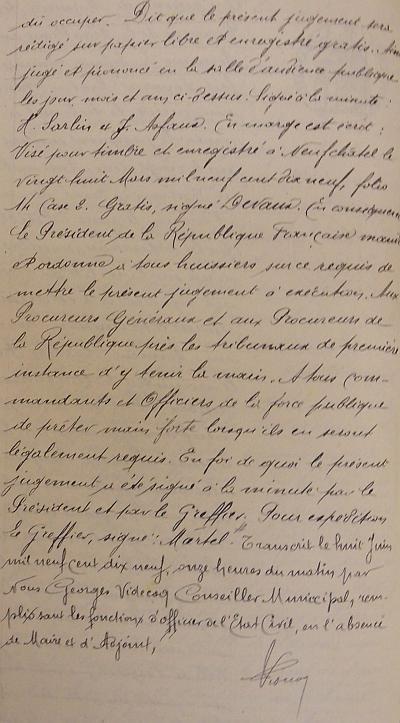 dû occuper. Dit que le présent jugement sera
rédigé sur papier libre et enregistré gratis. Ainsi
jugé et prononcé en la salle d'audience publique
les jour, mois et an ci-dessus. Signé à la minute :
H. Sarlin et J. Asfaux. En marge est écrit :
Visé pour timbre et enregistré à Neufchâtel le
vingt huit Mars mil neuf cent dix neuf, folio
14 Case 2. Gratis, signé Devaux. En conséquence
le Président de la République Française mande
et ordonne à tous huissiers sur ce requis de
mettre le présent jugement à exécution. Aux
Procureurs Généraux et aux Procureurs de
la République près les tribunaux de première
instance d'y tenir la main. A tous com-
mandants et Officiers de la force publique
de prêter main forte lorsqu'ils en seront
légalement requis. En foi de quoi le présent
jugement a été signé à la minute par le
Président et par le Greffier. Pour expédition
le Greffier, signé : Martel." Transcrit le huit Juin
mil neuf cent dix neuf, onze heures du matin par
Nous Georges Videcoq Conseiller Municipal, rem-
plissant les fonctions d'officier de l'Etat Civil, en l'absence
de Maire et d'Adjoint,